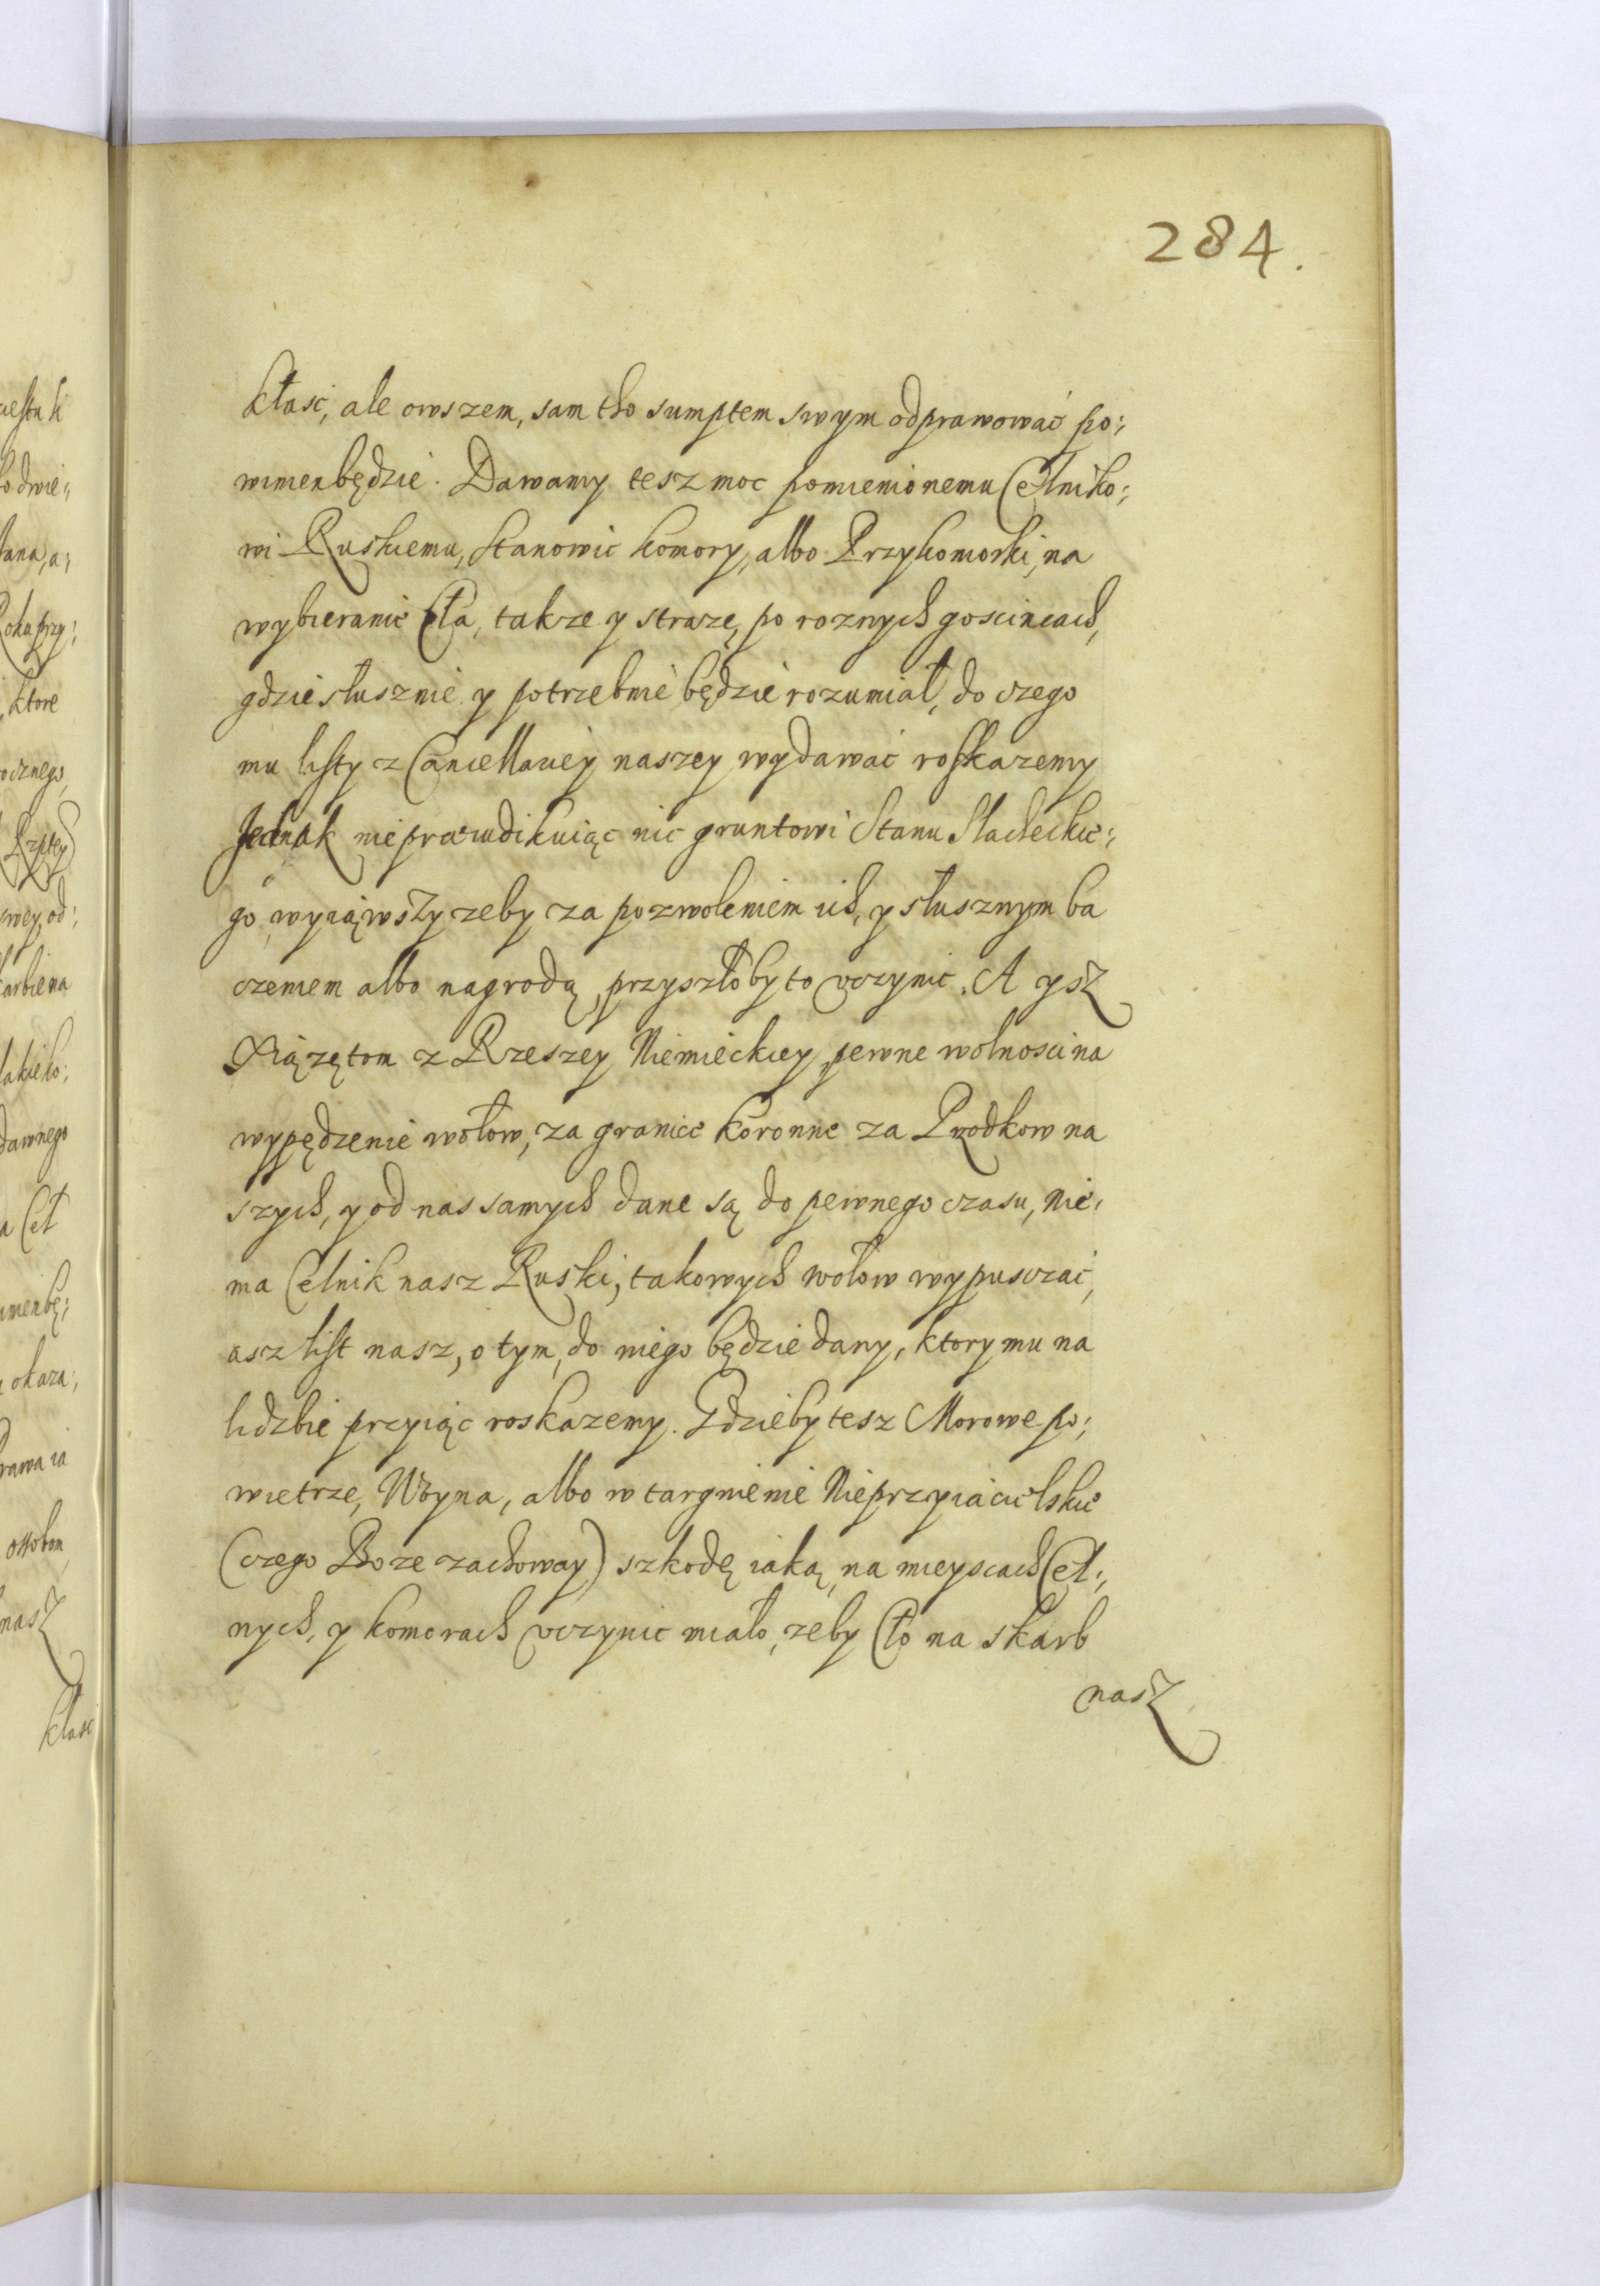 284.
kłasć, ale owszem, sam tho sumptem swym odprawować po:
winien będzie. Dawamy tesz moc pomienionemu Celniko:
wi Ruskiemu, stanowic komory, albo Przykomorki, na
wybieranie Cła, takze y straze, po roznych goscincach,
gdzie słusznie y potrzebnie będzie rozumiał, do czego
mu listy z Cancellariey naszey wydawać roskazemy
Jednak nieprаeiudikuiąc nic gruntowi Stanu Slacheckie:
go, wyiąwszy zeby za pozwoleniem ich, y słusznym ba
czeniem albo nagrodą, przyszłoby to vczynic. A ysz
Xiązętom z Rzeszey Niemieckiey, pewne wolnosci na
wypędzenie wołow, za granice koronne za Przodkow na
szych, y od nas samych dane są do pewnego czasu, nie:
ma Celnik nasz Ruski, takowych wołow wypusczać,
asz list nasz, o tym, do niego będzie dany, ktory mu na
lidzbie przyiąc roskazemy. Gdzieby tesz Morowe po:
wietrze, Woyna, albo wtargnienie Nieprzyiacielskie
(czego Boze zachoway) szkodę iaką, na mieyscach Cel:
nych, y komorach vczynic miało, zeby Cło na skarb
nasz